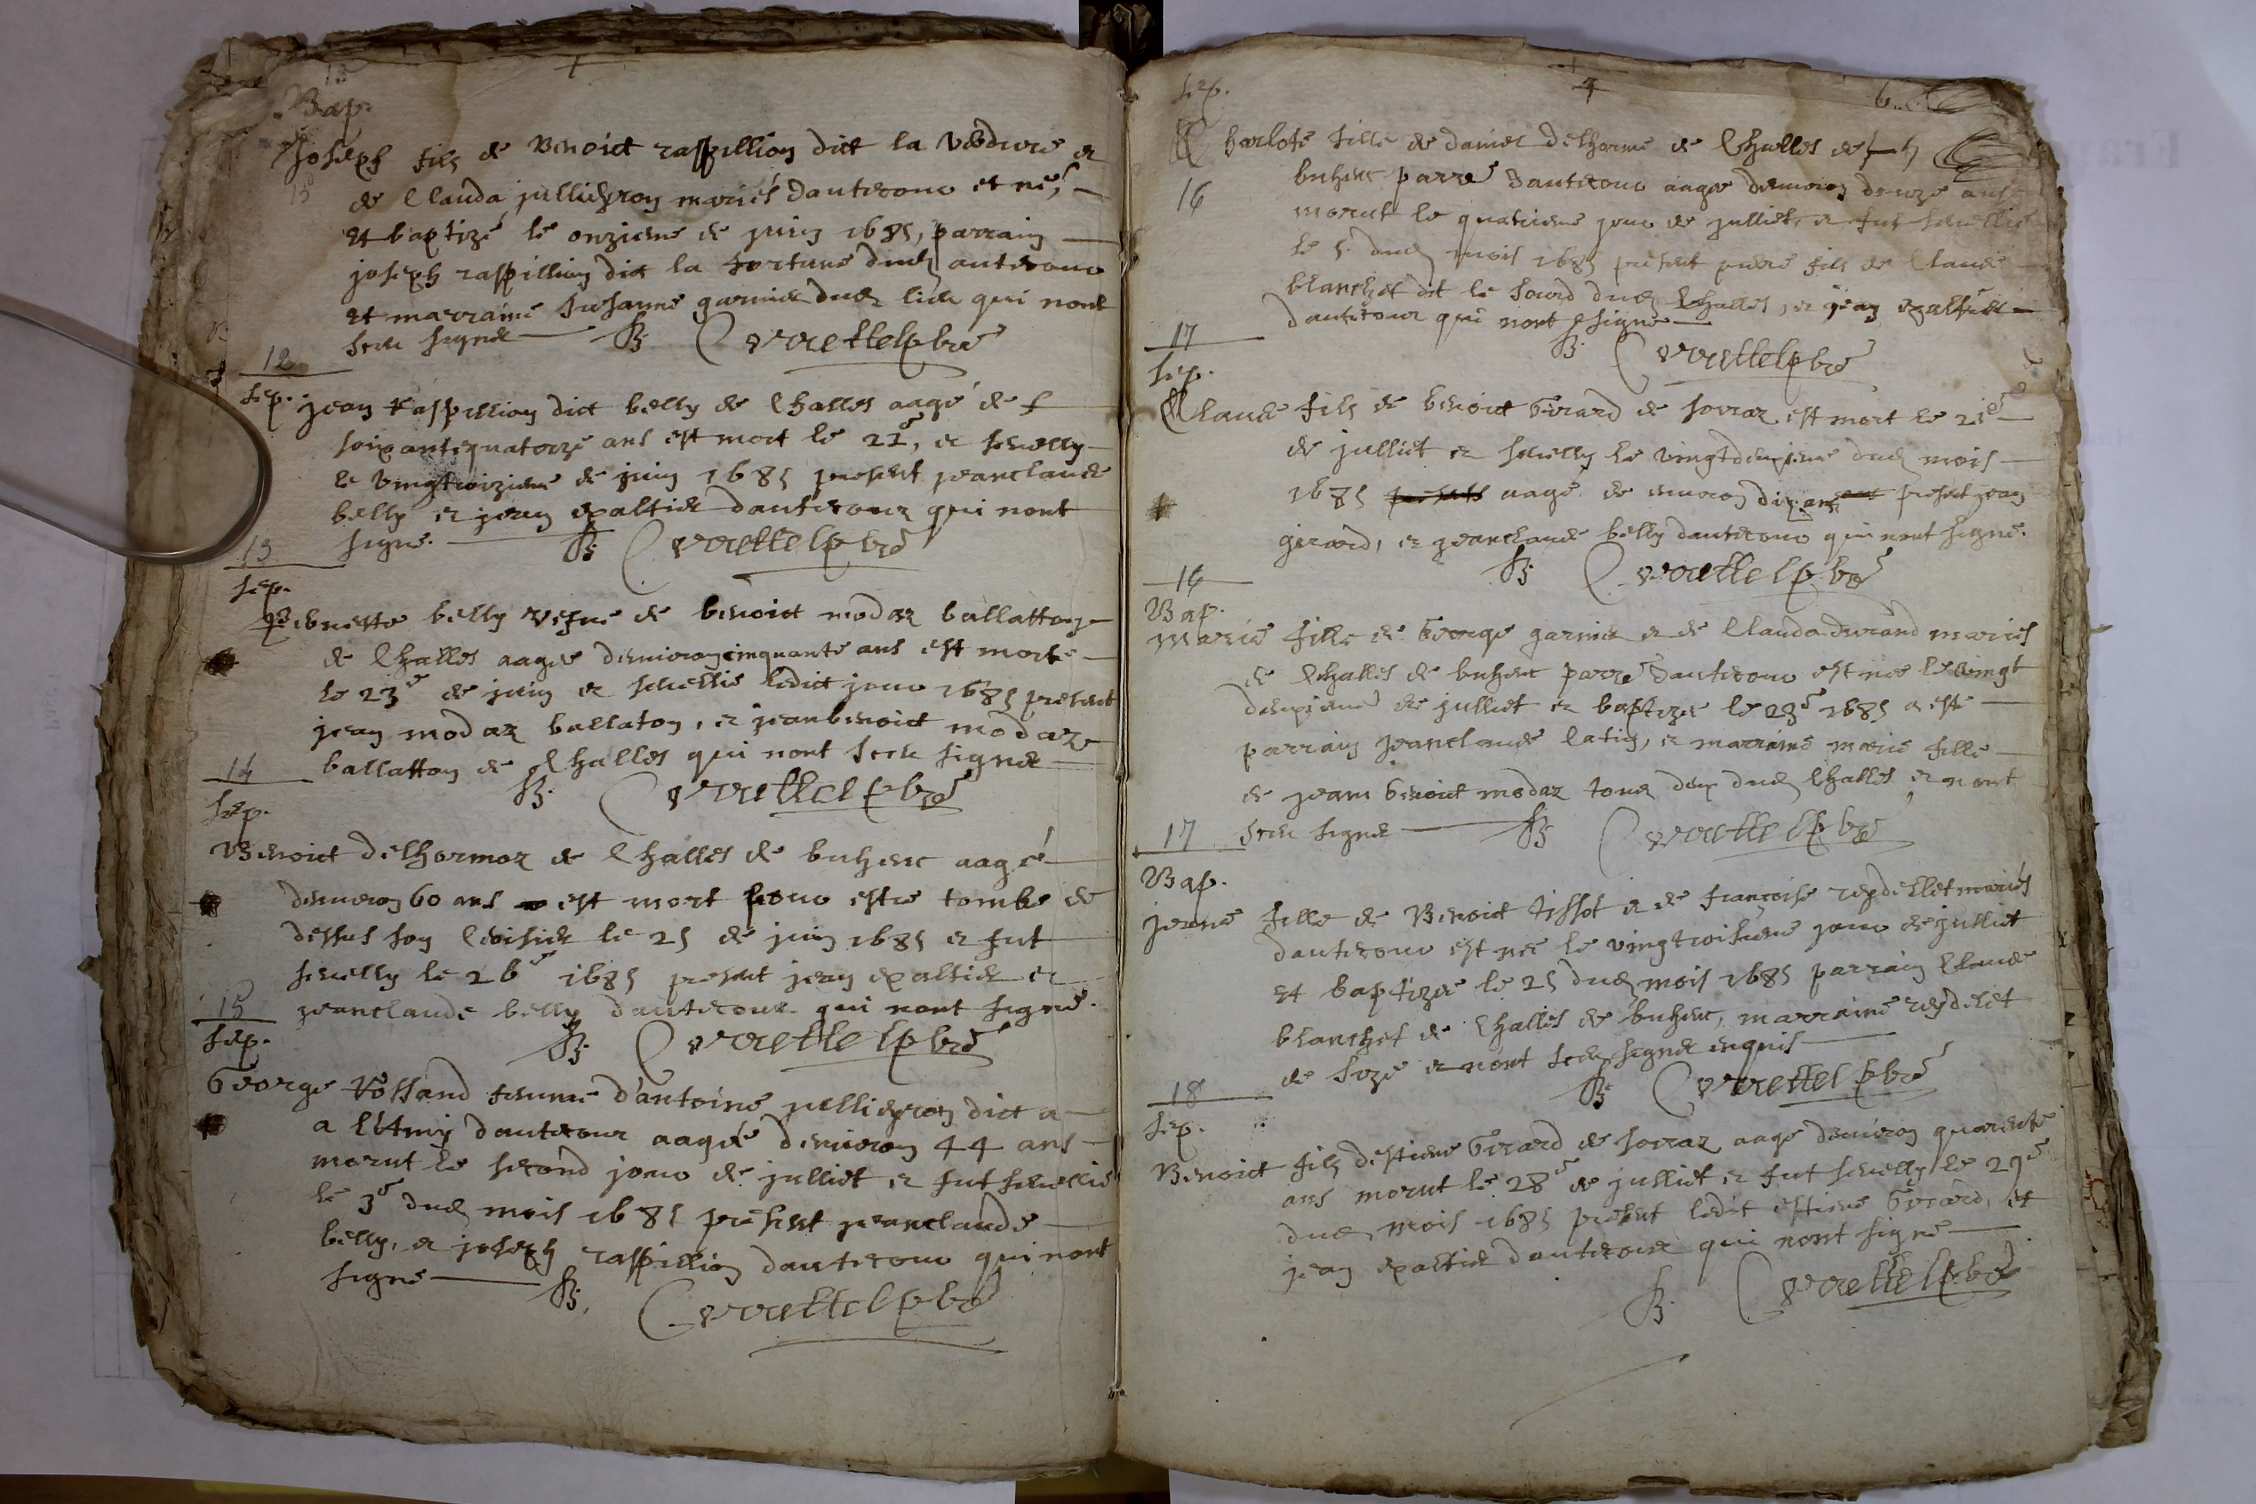 13
Bap.
Joseph fils de Benoict raspillion dict la verdure et
de Clauda jullieron mariés dautecour et né,
Et baptizé le onzieme de juin 1685, parrain
joseph raspillion dict la fortune dud autecour
et marraine susanne garnier dud lieu qui nont
sceu signer
Vrettel pbre
12
Sep.
jean raspillion dict belly de Challes aagé de
soixantequatorze ans est mort le 22e, et sevelly
le vingtroizieme de juin 1685 present jeanclaude
belly et jean exaltier dautecour qui nont
signé.
Vrettel pbre
13
Sep.
Pernette belly vefue de benoict modaz ballatton
de Challes aagée denviron cinquante ans est morte
le 23e de juin et sevellie ledict jour 1685 present
jean modaz ballaton, et jeanbenoict modaz
ballatton de Challes qui nont sceu signer
Vrettel pbre
14
Sep.
Benoict delhormoz de Challes de buhenc aagé
denviron 60 ans est mort pour estre tombé de
dessus son Cerisier le 25 de juin 1685 et fut
sevelly le 26e 1685 present jean exaltier et
jeanclaude belly dautecour qui nont signé.
Vrettel pbre
15
Sep.
George Volland femme d'antoine jullieron dict a
a dautecour aagée denviron 44 ans
morut le second jour de julliet et fut sevellie
le 3e dud mois 1685 present jeanclaude
belly, et joseph raspillion dautecour qui nont
signé
Vrettel pbre
Sep.
4
6
Charlote fille de daniel delhorme de Challes de
buhenc parre dautecour aagée denviron douze ans
16
morut le quatrieme jour de julliet, et fut sevellie
le 5. dud mois 1685 present pierre fils de Claude
blanchet dit le sourd dud Challes, et jean exaltier
dautecour qui nont signé
Vrettel pbre
17
Sep.
Claude fils de benoict Girard de sorraz est mort le 21e
de julliet et sevelly le vingtdeuxieme dud mois
1685 aagé de environ dix ans present jean
girard, et jeanclaude belly dautecour qui nont signé.
Vrettel pbre
16
Bap.
Marie fille de George garnier et de Clauda durand mariés
de Challes de buhenc parre dautecour est née le vingt
deuxieme de julliet et baptizée le 23e 1685 a esté
parrain jeanclaude latin, et marraine marie fille
de jeam benoict modaz tous deux dud Challes et nont
sceu signer
Vrettel pbre
17
Bap.
jeanne fille de Benoict tissot et de françoise reydellet mariés
dautecour est née le vingtroisieme jour de julliet
et baptizée le 25 dud mois 1685 parrain Claude
blanchet de Challes de buhenc, marraine reydelet
de et nont sceu signer enquis
Vrettel pbre
18
Sep.
Benoict fils destiene Girard de sorraz aagé denviron quarente
ans morut le 28e de julliet et fut sevelly le 29e
dud mois 1685 present ledit estiene Girard, et
jean exaltier dautecour qui nont signé
Vrettel pbre